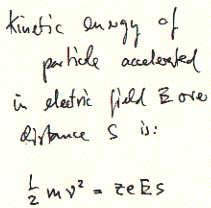 Kinetic energy of
particle accelerated
in electric field E over
distance S is:
½ m v² = zeEs